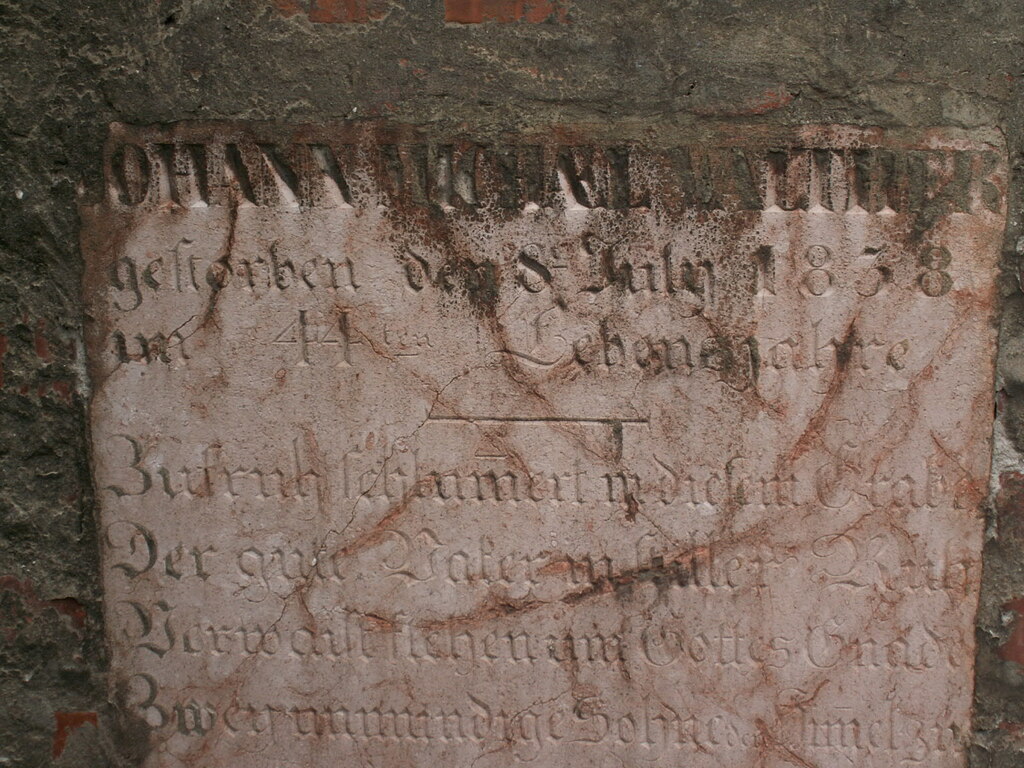 JOHANN MICHAEL WALTHER
gestorben den 8t July 1838
im 44ten Lebensjahre
Zufruh schlum̄ert in diesem Grabe
Der gute Vater in stiller Ruh
Verwaist flehen um Gottes Gnade
Zwey unmündige Söhne dem Him̄el zu